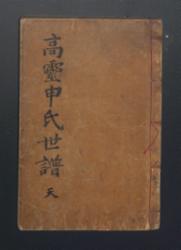 高靈申氏世譜 天